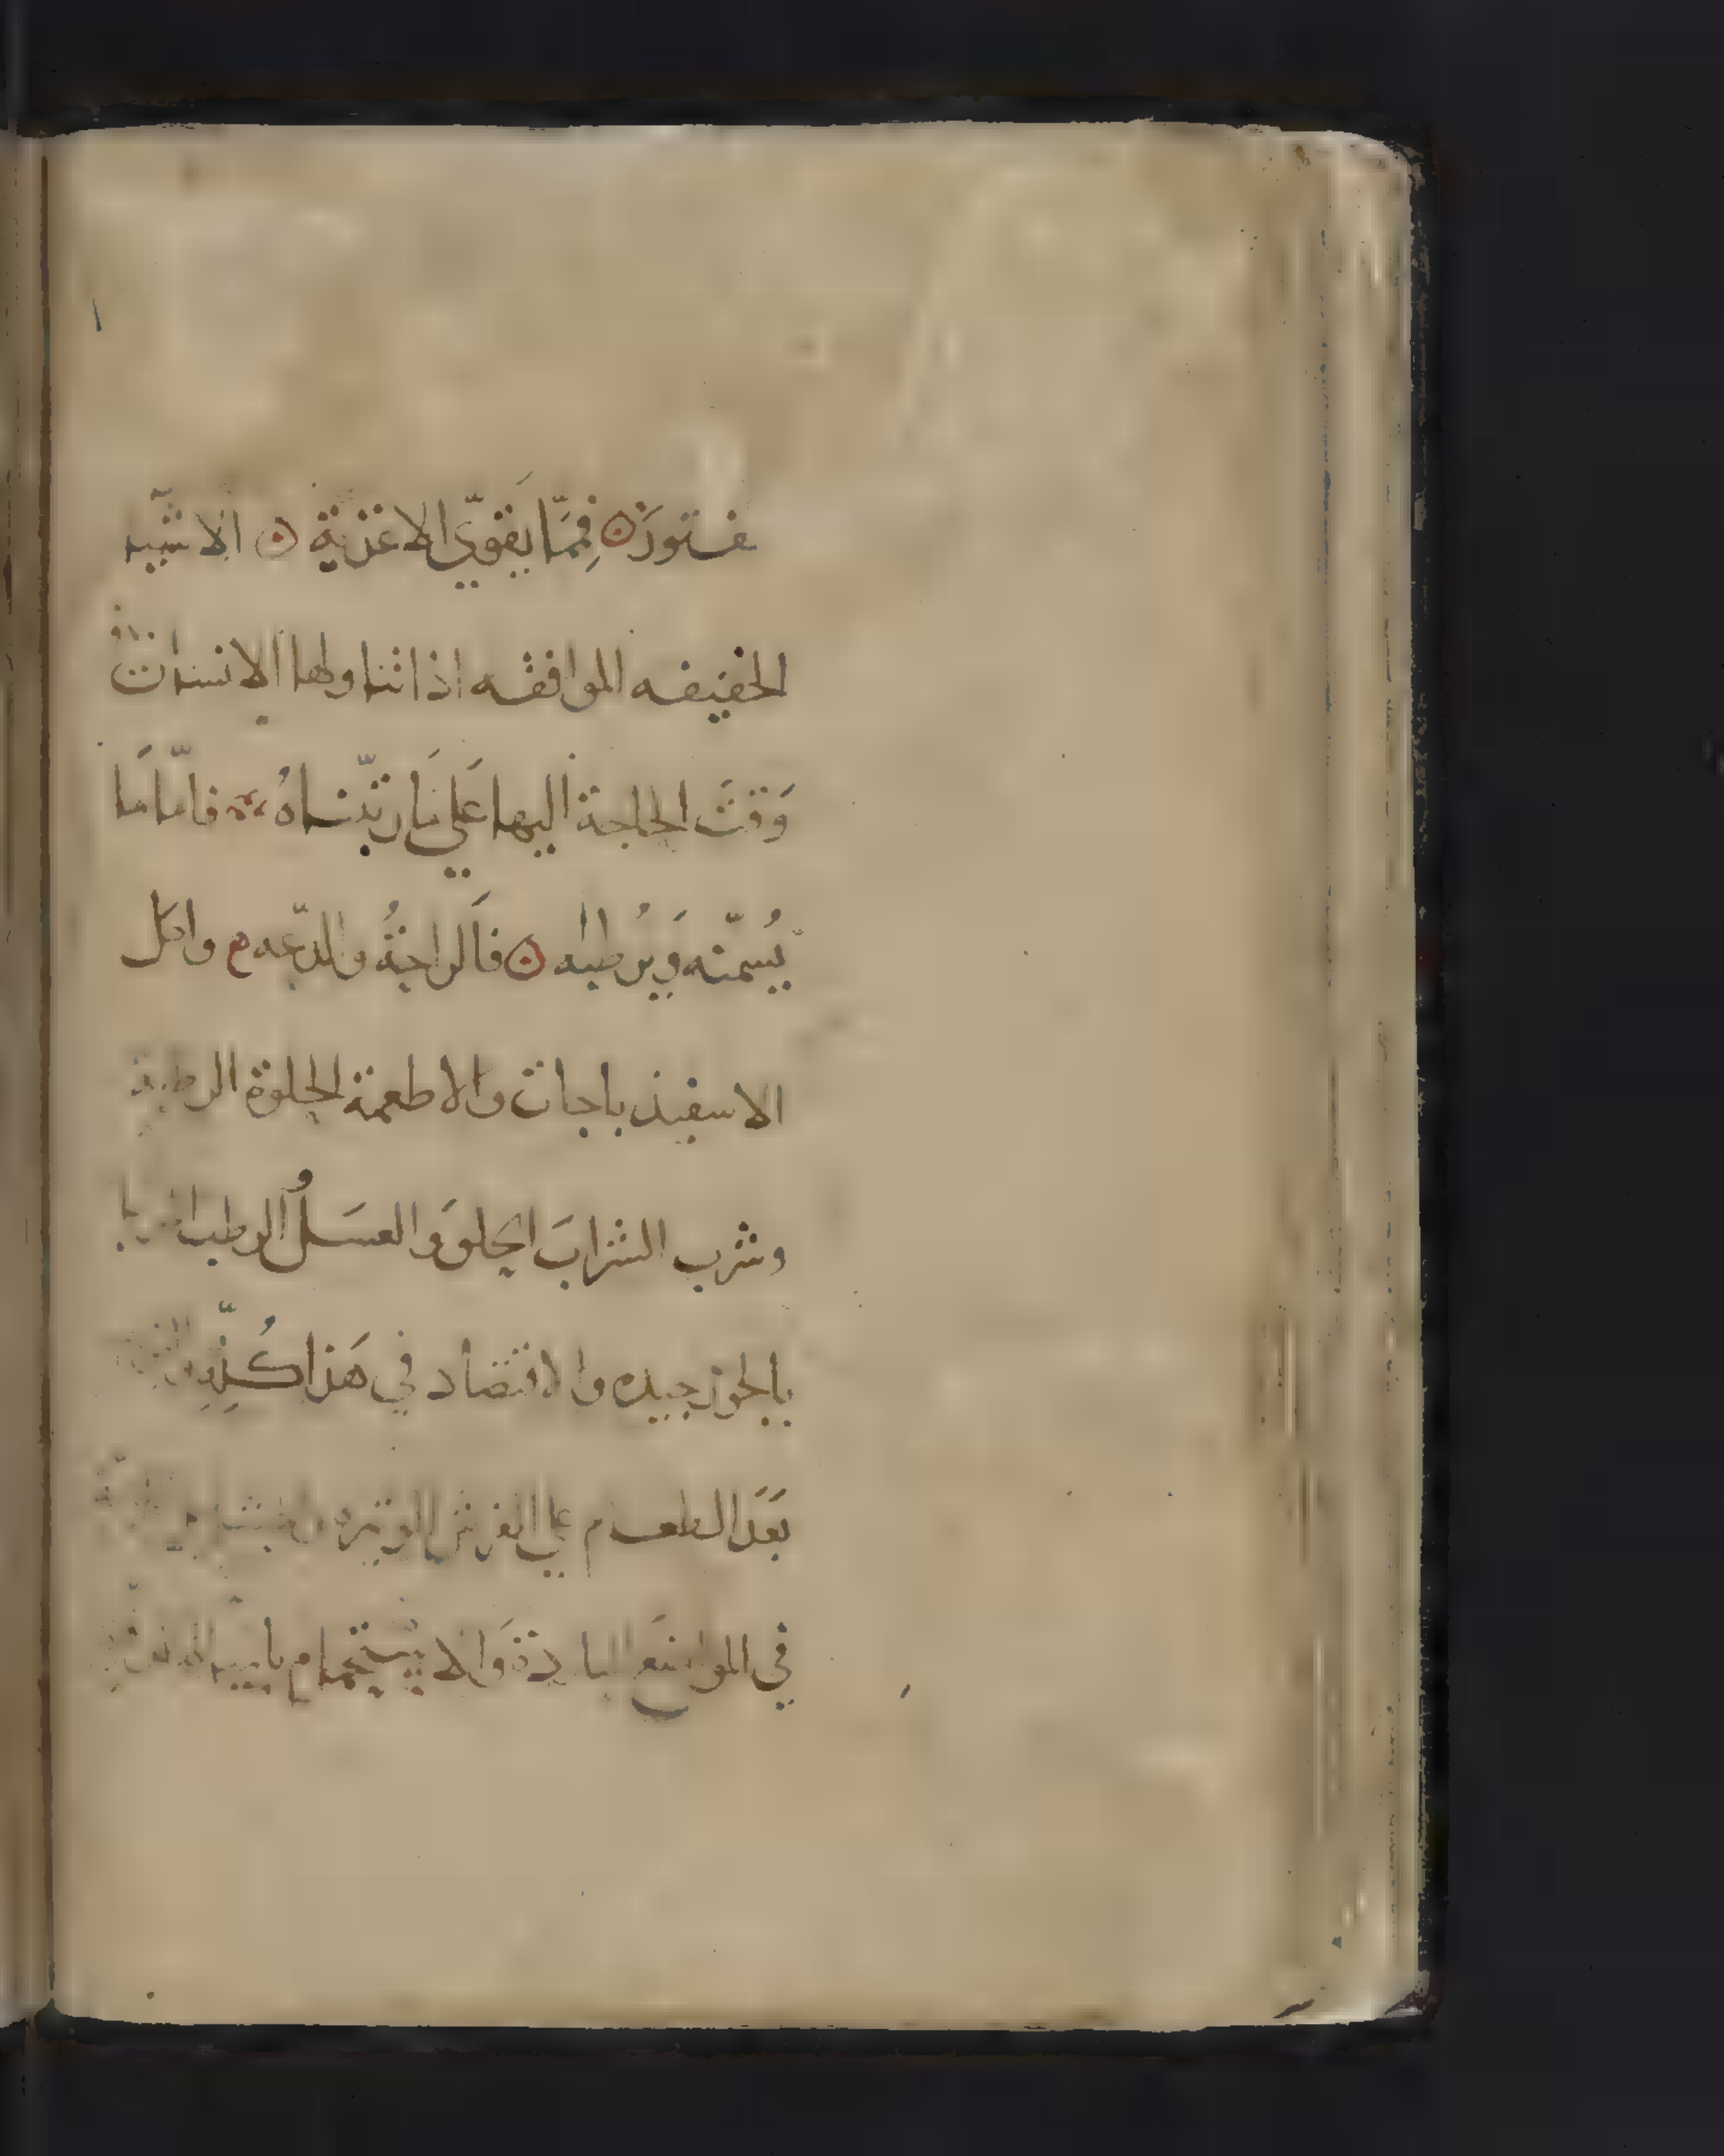 فتورَهُ فِمَمّا يَقوّي الاغذية الاشيّا
الخفيفه الموافقه اذا تناولها الانسان
وَقتَ الحاجة اليها عَلي مَا رتّبناهُ فامّا مَا
يُسمّنه وَيُرطبه فالراحَةُ والدّعه واكل
الاسفيذباجات والاطعمة الحلوة الرطبة
وشرب الشرابَ الحلوَ وَالعسَلُ الرطب
بالجوز جيده والاقتصاد في هَذا كُلّهِ
بَعدَ الطعام علي الفرش الوتيره
في المواضع الباردة وَالاستحمام